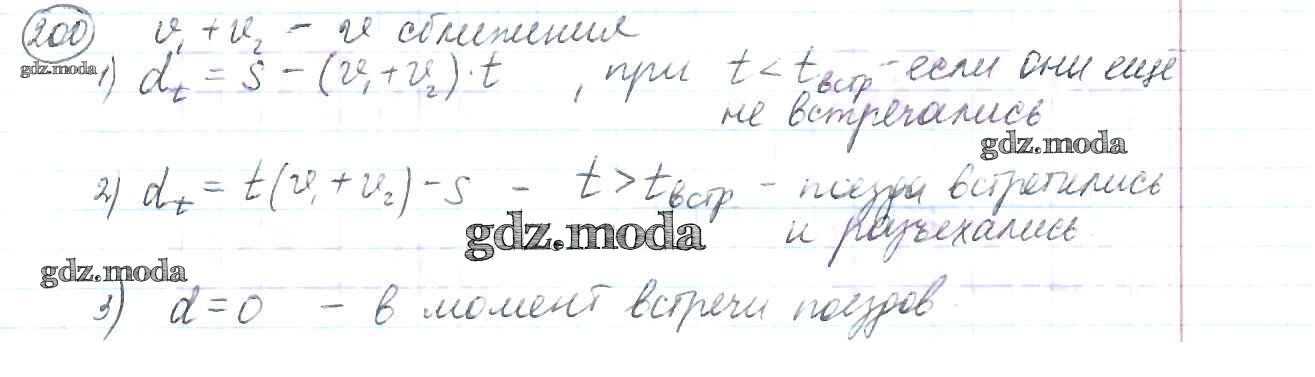 200 v₁ + v₂ - v сближения
gdz.moda
1) dₜ = S - (v₁ + v₂)·t , при t < t встр - если они ещё
не встречались
gdz.moda
2) dₜ = t(v₁ + v₂) - S - t > t встр - поезда встретились
и разъехались
gdz.moda
gdz.moda
3) d = 0 - в момент встречи поездов.